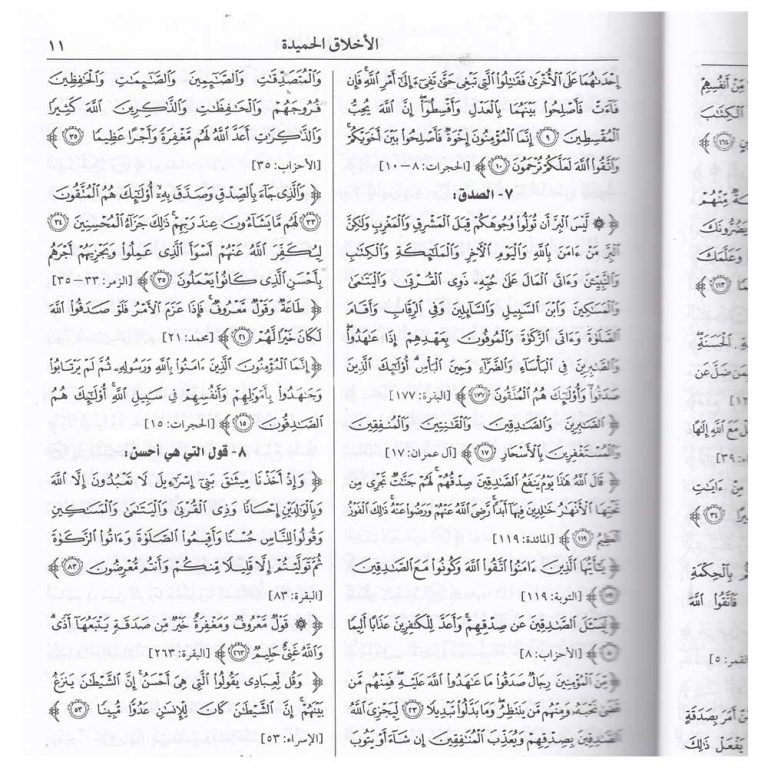 الأخلاق الحميدة
١١
إِحْدَىٰهُمَا عَلَى ٱلْأُخْرَىٰ فَقَٰتِلُوا۟ ٱلَّتِى تَبْغِى حَتَّىٰ تَفِىٓءَ إِلَىٰٓ أَمْرِ ٱللَّهِ ۚ فَإِن
فَآءَتْ فَأَصْلِحُوا۟ بَيْنَهُمَا بِٱلْعَدْلِ وَأَقْسِطُوٓا۟ ۖ إِنَّ ٱللَّهَ يُحِبُّ
ٱلْمُقْسِطِينَ ﴿٩﴾ إِنَّمَا ٱلْمُؤْمِنُونَ إِخْوَةٌ فَأَصْلِحُوا۟ بَيْنَ أَخَوَيْكُمْ ۚ
وَٱتَّقُوا۟ ٱللَّهَ لَعَلَّكُمْ تُرْحَمُونَ ﴿١٠﴾ [الحجرات: ٨ – ١٠]
٧- الصدق:
﴿ ۞ لَّيْسَ ٱلْبِرَّ أَن تُوَلُّوا۟ وُجُوهَكُمْ قِبَلَ ٱلْمَشْرِقِ وَٱلْمَغْرِبِ وَلَٰكِنَّ
ٱلْبِرَّ مَنْ ءَامَنَ بِٱللَّهِ وَٱلْيَوْمِ ٱلْـَٔاخِرِ وَٱلْمَلَٰٓئِكَةِ وَٱلْكِتَٰبِ
وَٱلنَّبِيِّـۧنَ وَءَاتَى ٱلْمَالَ عَلَىٰ حُبِّهِۦ ذَوِى ٱلْقُرْبَىٰ وَٱلْيَتَٰمَىٰ
وَٱلْمَسَٰكِينَ وَٱبْنَ ٱلسَّبِيلِ وَٱلسَّآئِلِينَ وَفِى ٱلرِّقَابِ وَأَقَامَ
ٱلصَّلَوٰةَ وَءَاتَى ٱلزَّكَوٰةَ وَٱلْمُوفُونَ بِعَهْدِهِمْ إِذَا عَٰهَدُوا۟ ۖ
وَٱلصَّٰبِرِينَ فِى ٱلْبَأْسَآءِ وَٱلضَّرَّآءِ وَحِينَ ٱلْبَأْسِ ۗ أُو۟لَٰٓئِكَ ٱلَّذِينَ
صَدَقُوا۟ ۖ وَأُو۟لَٰٓئِكَ هُمُ ٱلْمُتَّقُونَ ﴿١٧٧﴾ [البقرة: ١٧٧]
﴿ ٱلصَّٰبِرِينَ وَٱلصَّٰدِقِينَ وَٱلْقَٰنِتِينَ وَٱلْمُنفِقِينَ
وَٱلْمُسْتَغْفِرِينَ بِٱلْأَسْحَارِ ﴿١٧﴾ [آل عمران: ١٧]
﴿ قَالَ ٱللَّهُ هَٰذَا يَوْمُ يَنفَعُ ٱلصَّٰدِقِينَ صِدْقُهُمْ ۚ لَهُمْ جَنَّٰتٌ تَجْرِى مِن
تَحْتِهَا ٱلْأَنْهَٰرُ خَٰلِدِينَ فِيهَآ أَبَدًا ۚ رَّضِىَ ٱللَّهُ عَنْهُمْ وَرَضُوا۟ عَنْهُ ۚ ذَٰلِكَ ٱلْفَوْزُ
ٱلْعَظِيمُ ﴿١١٩﴾ [المائدة: ١١٩]
﴿ يَٰٓأَيُّهَا ٱلَّذِينَ ءَامَنُوا۟ ٱتَّقُوا۟ ٱللَّهَ وَكُونُوا۟ مَعَ ٱلصَّٰدِقِينَ
﴿١١٩﴾ [التوبة: ١١٩]
﴿ لِّيَسْـَٔلَ ٱلصَّٰدِقِينَ عَن صِدْقِهِمْ ۚ وَأَعَدَّ لِلْكَٰفِرِينَ عَذَابًا أَلِيمًا
﴿٨﴾ [الأحزاب: ٨]
﴿ مِّنَ ٱلْمُؤْمِنِينَ رِجَالٌ صَدَقُوا۟ مَا عَٰهَدُوا۟ ٱللَّهَ عَلَيْهِ ۖ فَمِنْهُم مَّن
قَضَىٰ نَحْبَهُۥ وَمِنْهُم مَّن يَنتَظِرُ ۖ وَمَا بَدَّلُوا۟ تَبْدِيلًا ﴿٢٣﴾ لِّيَجْزِىَ ٱللَّهُ
ٱلصَّٰدِقِينَ بِصِدْقِهِمْ وَيُعَذِّبَ ٱلْمُنَٰفِقِينَ إِن شَآءَ أَوْ يَتُوبَ
وَٱلْمُتَصَدِّقَٰتِ وَٱلصَّٰٓئِمِينَ وَٱلصَّٰٓئِمَٰتِ وَٱلْحَٰفِظِينَ
فُرُوجَهُمْ وَٱلْحَٰفِظَٰتِ وَٱلذَّٰكِرِينَ ٱللَّهَ كَثِيرًا
وَٱلذَّٰكِرَٰتِ أَعَدَّ ٱللَّهُ لَهُم مَّغْفِرَةً وَأَجْرًا عَظِيمًا ﴿٣٥﴾
[الأحزاب: ٣٥]
﴿ وَٱلَّذِى جَآءَ بِٱلصِّدْقِ وَصَدَّقَ بِهِۦٓ ۙ أُو۟لَٰٓئِكَ هُمُ ٱلْمُتَّقُونَ
﴿٣٣﴾ لَهُم مَّا يَشَآءُونَ عِندَ رَبِّهِمْ ۚ ذَٰلِكَ جَزَآءُ ٱلْمُحْسِنِينَ ﴿٣٤﴾
لِيُكَفِّرَ ٱللَّهُ عَنْهُمْ أَسْوَأَ ٱلَّذِى عَمِلُوا۟ وَيَجْزِيَهُمْ أَجْرَهُم
بِأَحْسَنِ ٱلَّذِى كَانُوا۟ يَعْمَلُونَ ﴿٣٥﴾ [الزمر: ٣٣ – ٣٥]
﴿ طَاعَةٌ وَقَوْلٌ مَّعْرُوفٌ ۚ فَإِذَا عَزَمَ ٱلْأَمْرُ فَلَوْ صَدَقُوا۟ ٱللَّهَ
لَكَانَ خَيْرًا لَّهُمْ ﴿٢١﴾ [محمد: ٢١]
﴿ إِنَّمَا ٱلْمُؤْمِنُونَ ٱلَّذِينَ ءَامَنُوا۟ بِٱللَّهِ وَرَسُولِهِۦ ثُمَّ لَمْ يَرْتَابُوا۟
وَجَٰهَدُوا۟ بِأَمْوَٰلِهِمْ وَأَنفُسِهِمْ فِى سَبِيلِ ٱللَّهِ ۚ أُو۟لَٰٓئِكَ هُمُ
ٱلصَّٰدِقُونَ ﴿١٥﴾ [الحجرات: ١٥]
٨- قول التي هي أحسن:
﴿ وَإِذْ أَخَذْنَا مِيثَٰقَ بَنِىٓ إِسْرَٰٓءِيلَ لَا تَعْبُدُونَ إِلَّا ٱللَّهَ
وَبِٱلْوَٰلِدَيْنِ إِحْسَانًا وَذِى ٱلْقُرْبَىٰ وَٱلْيَتَٰمَىٰ وَٱلْمَسَٰكِينِ
وَقُولُوا۟ لِلنَّاسِ حُسْنًا وَأَقِيمُوا۟ ٱلصَّلَوٰةَ وَءَاتُوا۟ ٱلزَّكَوٰةَ
ثُمَّ تَوَلَّيْتُمْ إِلَّا قَلِيلًا مِّنكُمْ وَأَنتُم مُّعْرِضُونَ ﴿٨٣﴾
[البقرة: ٨٣]
﴿ ۞ قَوْلٌ مَّعْرُوفٌ وَمَغْفِرَةٌ خَيْرٌ مِّن صَدَقَةٍ يَتْبَعُهَآ أَذًى ۗ
وَٱللَّهُ غَنِىٌّ حَلِيمٌ ﴿٢٦٣﴾ [البقرة: ٢٦٣]
﴿ وَقُل لِّعِبَادِى يَقُولُوا۟ ٱلَّتِى هِىَ أَحْسَنُ ۚ إِنَّ ٱلشَّيْطَٰنَ يَنزَغُ
بَيْنَهُمْ ۚ إِنَّ ٱلشَّيْطَٰنَ كَانَ لِلْإِنسَٰنِ عَدُوًّا مُّبِينًا ﴿٥٣﴾
[الإسراء: ٥٣]